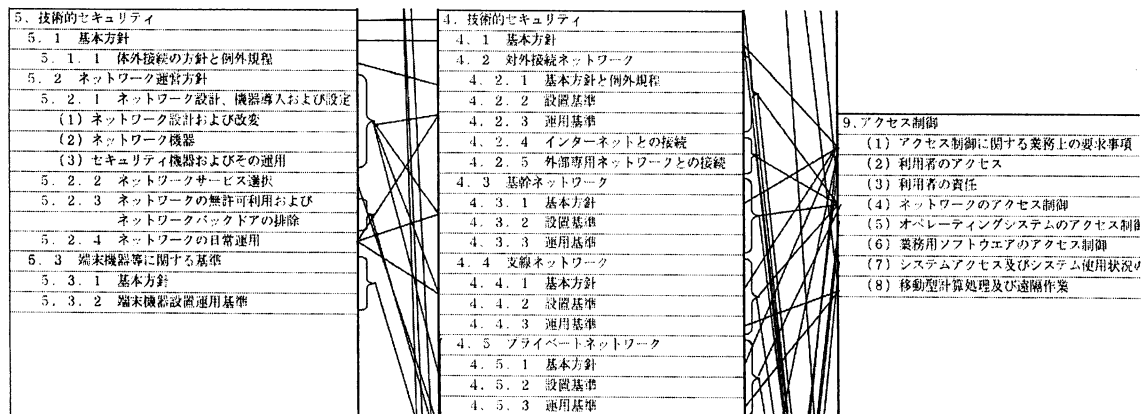 5. 技術的セキュリティ
5.1 基本方針
5.1.1 体外接続の方針と例外規程
5.2 ネットワーク運営方針
5.2.1 ネットワーク設計、機器導入および設定
(1) ネットワーク設計および改変
(2) ネットワーク機器
(3) セキュリティ機器およびその運用
5.2.2 ネットワークサービス選択
5.2.3 ネットワークの無許可利用および
ネットワークバックドアの排除
5.2.4 ネットワークの日常運用
5.3 端末機器等に関する基準
5.3.1 基本方針
5.3.2 端末機器設置運用基準
4. 技術的セキュリティ
4.1 基本方針
4.2 対外接続ネットワーク
4.2.1 基本方針と例外規程
4.2.2 設置基準
4.2.3 運用基準
4.2.4 インターネットとの接続
4.2.5 外部専用ネットワークとの接続
4.3 基幹ネットワーク
4.3.1 基本方針
4.3.2 設置基準
4.3.3 運用基準
4.4 支線ネットワーク
4.4.1 基本方針
4.4.2 設置基準
4.4.3 運用基準
4.5 プライベートネットワーク
4.5.1 基本方針
4.5.2 設置基準
4.5.3 運用基準
9. アクセス制御
(1) アクセス制御に関する業務上の要求事項
(2) 利用者のアクセス
(3) 利用者の責任
(4) ネットワークのアクセス制御
(5) オペレーティングシステムのアクセス制御
(6) 業務用ソフトウエアのアクセス制御
(7) システムアクセス及びシステム使用状況の
(8) 移動型計算処理及び遠隔作業